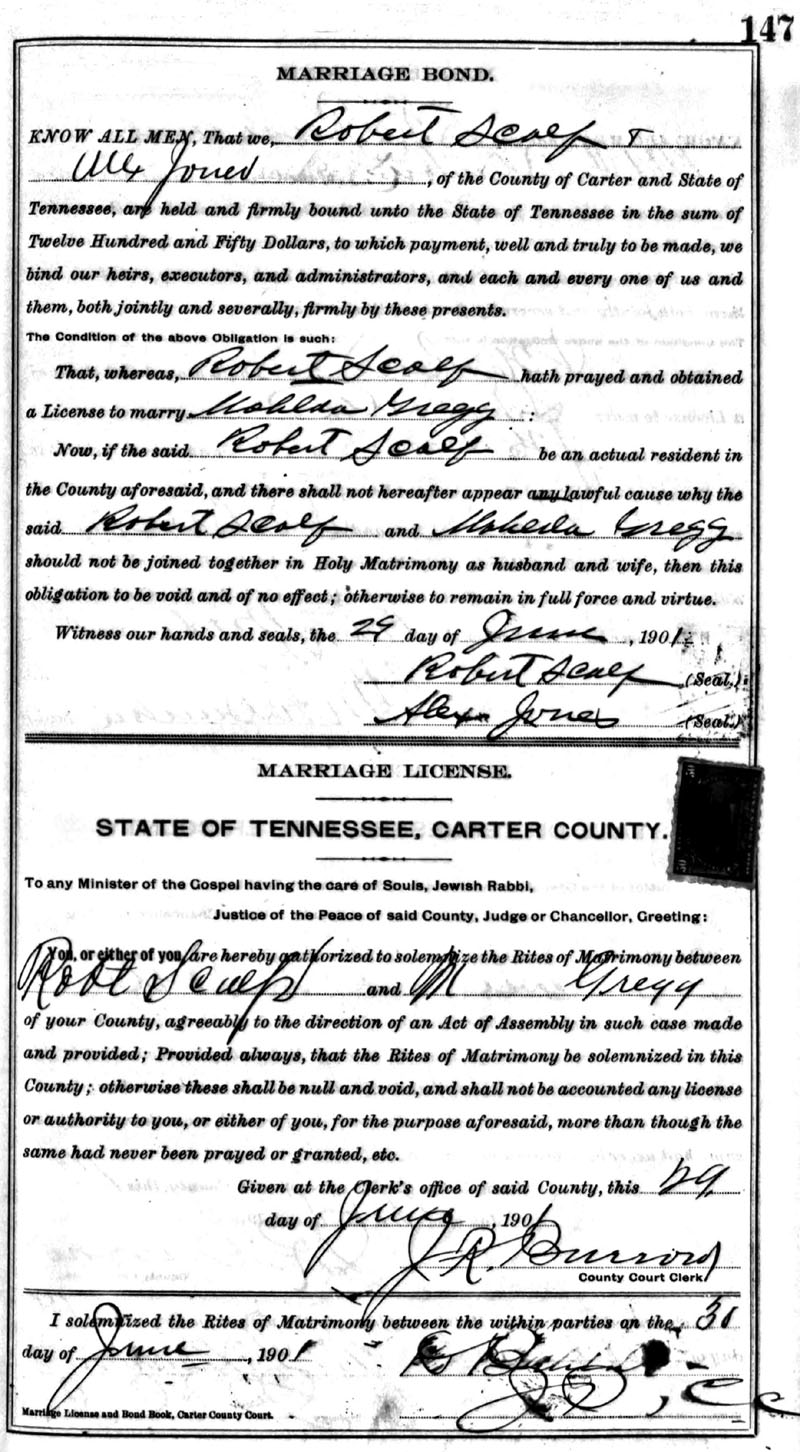 147
MARRIAGE BOND.
KNOW ALL MEN, That we, Robert Scalf &
Alx Jones, of the County of Carter and State of
Tennessee, are held and firmly bound unto the State of Tennessee in the sum of
Twelve Hundred and Fifty Dollars, to which payment, well and truly to be made, we
bind our heirs, executors, and administrators, and each and every one of us and
them, both jointly and severally, firmly by these presents.
The Condition of the above Obligation is such:
That, whereas, Robert Scalf hath prayed and obtained
a License to marry Mahelda Gregg :
Now, if the said Robert Scalf be an actual resident in
the County aforesaid, and there shall not hereafter appear any lawful cause why the
said Robert Scalf and Gregg
should not be joined together in Holy Matrimony as husband and wife, then this
obligation to be void and of no effect; otherwise to remain in full force and virtue.
Witness our hands and seals, the 29 day of June, 1901.
Robert Scalf (Seal.)
Alex Jones (Seal.)
MARRIAGE LICENSE.
STATE OF TENNESSEE, CARTER COUNTY.
To any Minister of the Gospel having the care of Souls, Jewish Rabbi,
Justice of the Peace of said County, Judge or Chancellor, Greeting:
You, or either of you, are hereby authorized to solemnize the Rites of Matrimony between
Robt Scalf and M Gregg
of your County, agreeably to the direction of an Act of Assembly in such case made
and provided; Provided always, that the Rites of Matrimony be solemnized in this
County; otherwise these shall be null and void, and shall not be accounted any license
or authority to you, or either of you, for the purpose aforesaid, more than though the
same had never been prayed or granted, etc.
Given at the Clerk's office of said County, this 29
day of June, 1901
J. R. Burrow
County Court Clerk
I solemnized the Rites of Matrimony between the within parties on the 30
day of June, 1901
Marriage License and Bond Book, Carter County Court.